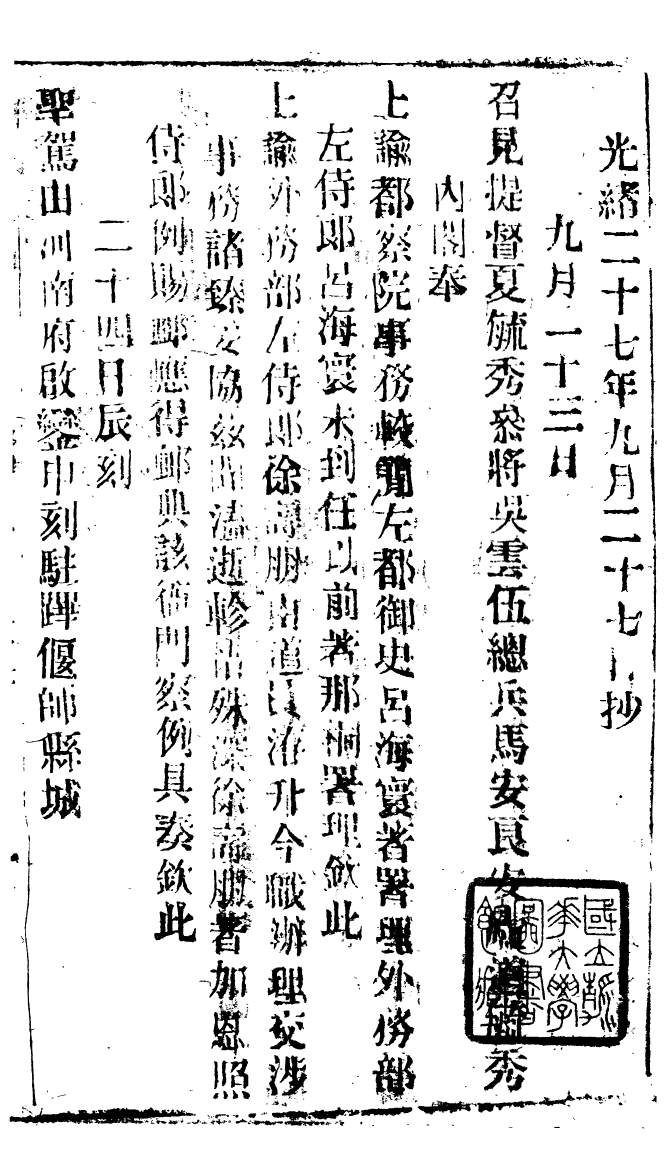 光緒二十七年九月二十七日抄
九月二十三日
召見提督夏毓秀叅將吳雲伍總兵馬安良安 道 秀
內閣奉
上諭都察院事務較繁左都御史呂海寰著署理外務部
左侍郎呂海寰未到任以前著那桐署理欽此
上諭外務部左侍郎徐壽朋由道員洊升今職辦理交涉
事務諸臻妥協茲聞溘逝軫惜殊深徐壽朋著加恩照
侍郎例賜卹應得卹典該衙門察例具奏欽此
二十四日辰刻
聖駕由河南府啟鑾申刻駐蹕偃師縣城
國立清華大學圖書館藏